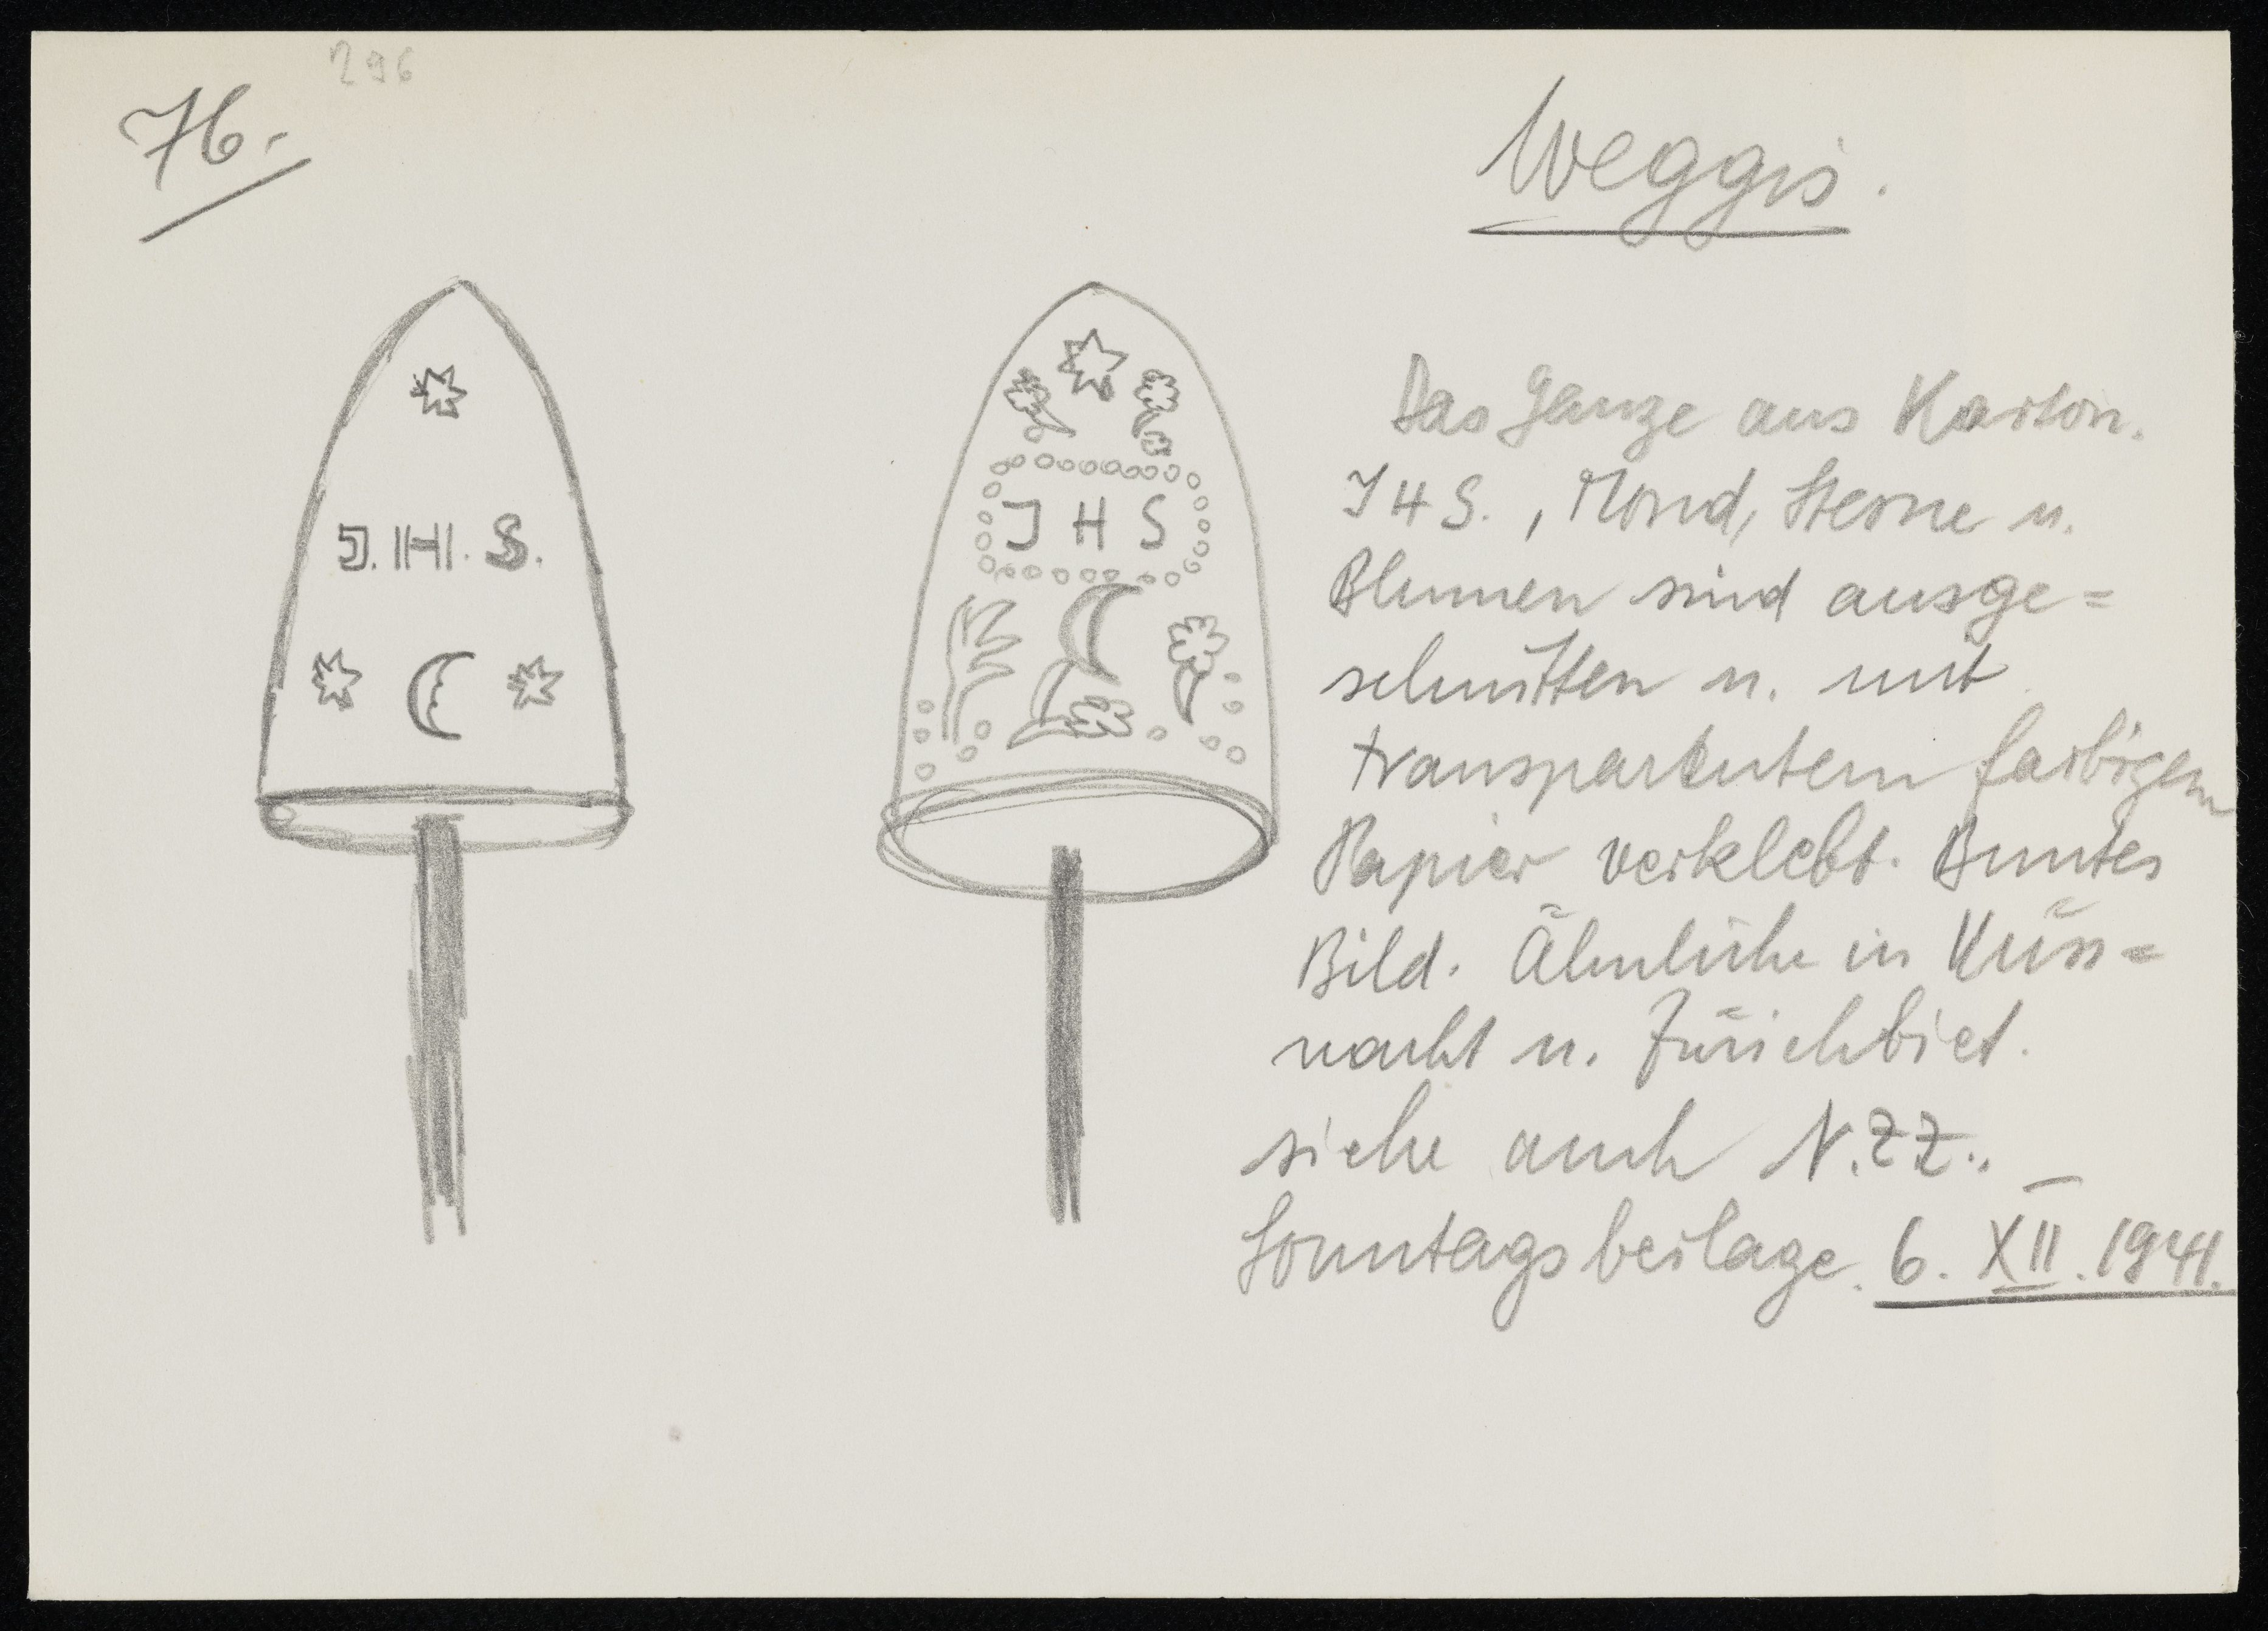 296
76.
Weggis.
J. H. S.
J H S
Das Ganze aus Karton.
JHS., Mond, Sterne u.
Blumen sind ausge=
schnitten u. mit
transparentem farbigem
Papier verklebt. Buntes
Bild. Ähnliche in Küss=
nacht u. Zürichbiet.
siehe auch N.ZZ.. –
Sonntagsbeilage. 6. XII. 1941.